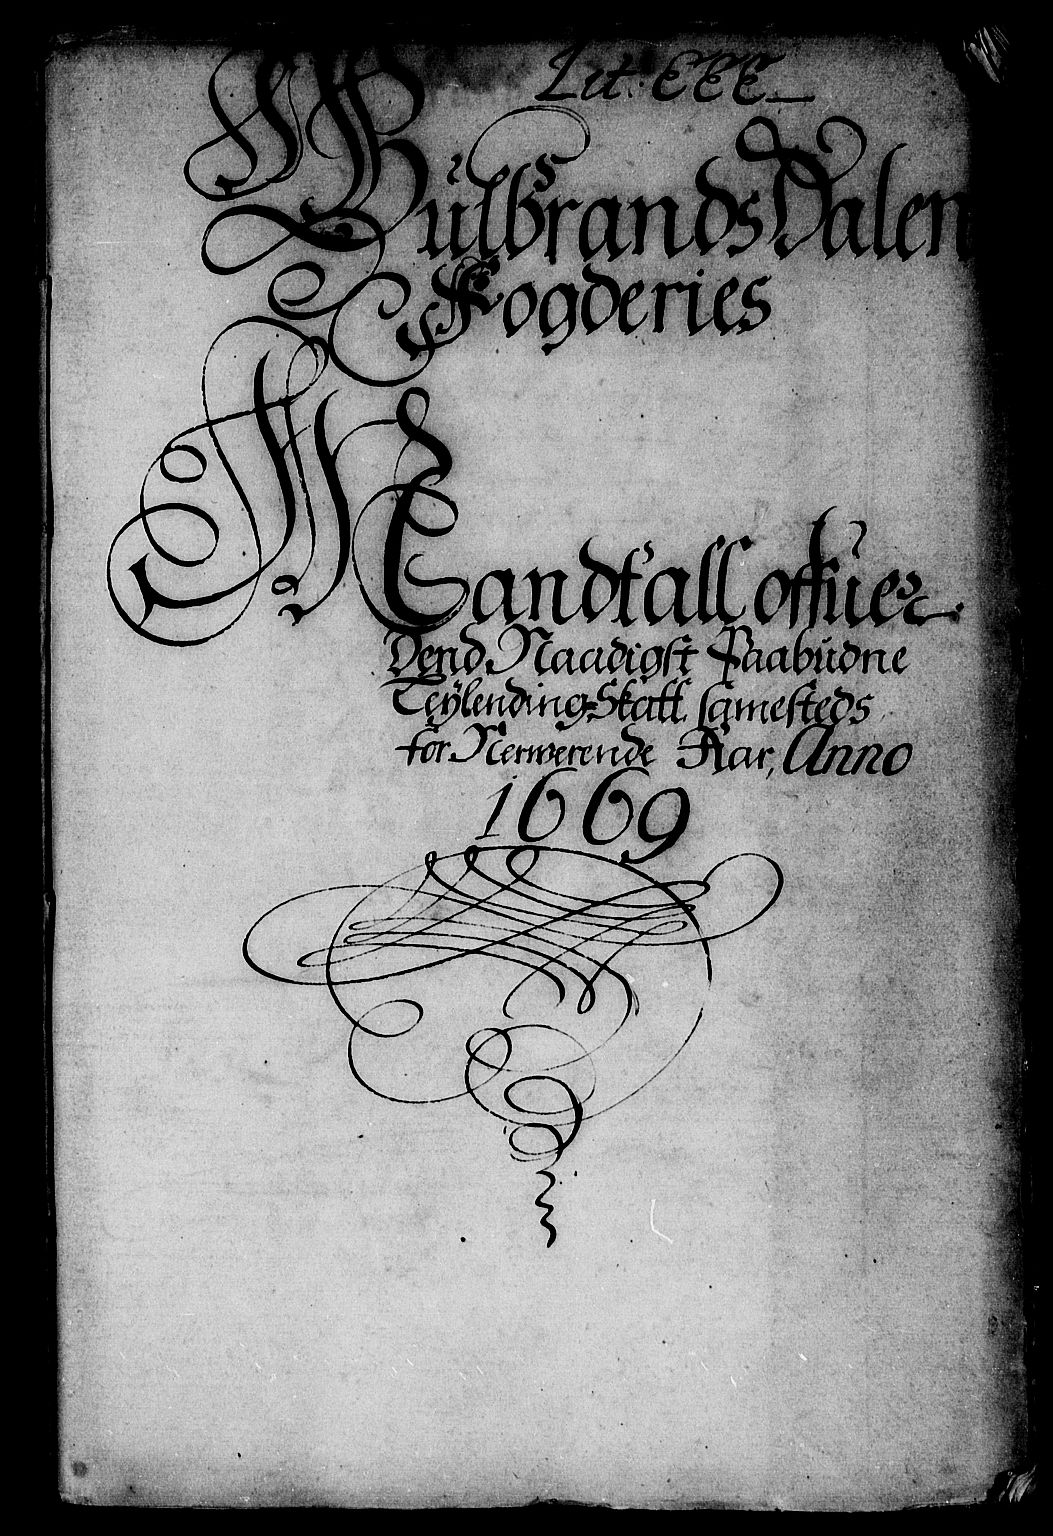 Lit: EEE
Gulbrands Dalen
Fogderies
Mandtall offuer
Dend Naadigst Paabudne
Leÿlending Skatt, samesteds
for Nerwerende Aar, Anno
1669